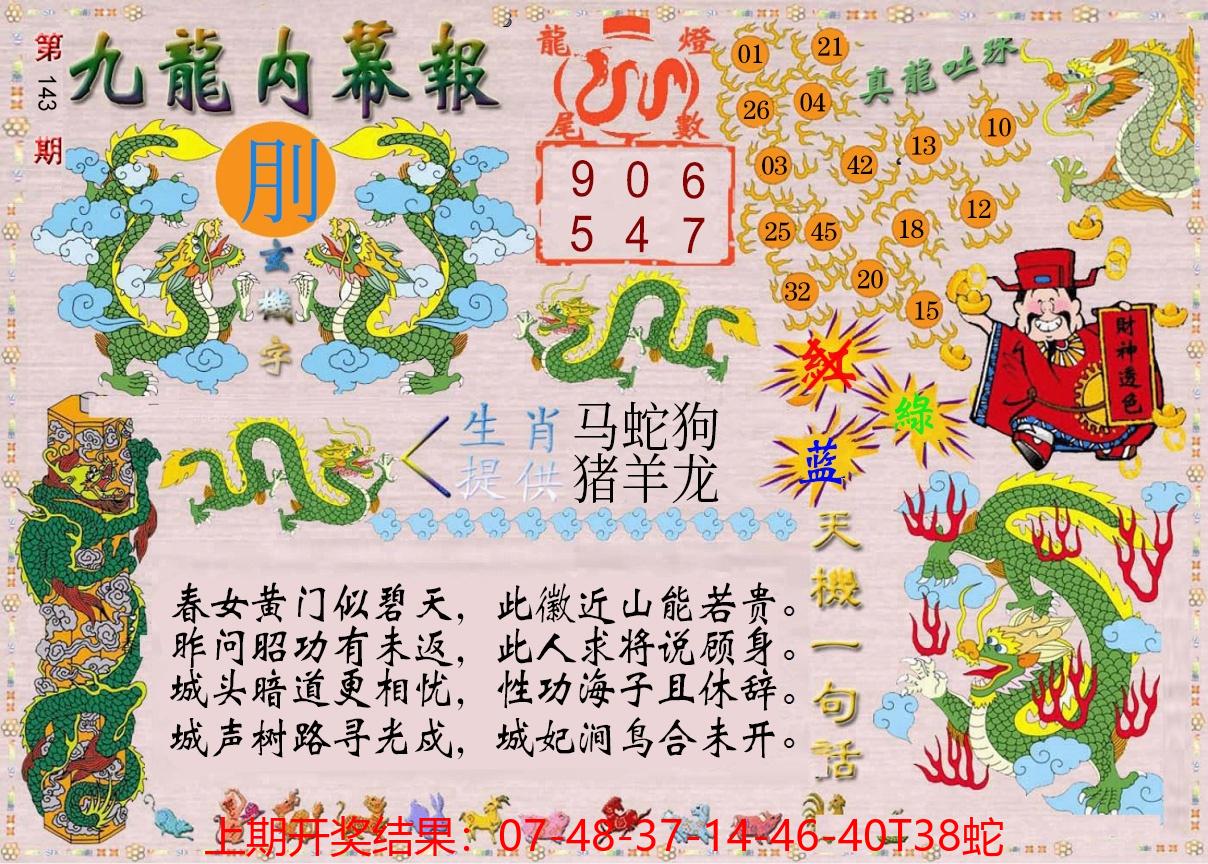 第143期
九龍内幕報
刖
玄機字
龍燈
尾數
9 0 6
5 4 7
真龍吐珠
01 21
26 04
13 10
03 42
12
25 45 18
32 20
15
財神透色
紅
綠
蓝
生肖 马蛇狗
提供 猪羊龙
天機一句话
春女黄门似碧天，此徽近山能若贵。
昨问昭功有未返，此人求将说顾身。
城头暗道更相忧，性功海子且休辞。
城声树路寻光戍，城妃涧鸟合未开。
上期开奖结果：07-48-37-14-46-40T38蛇